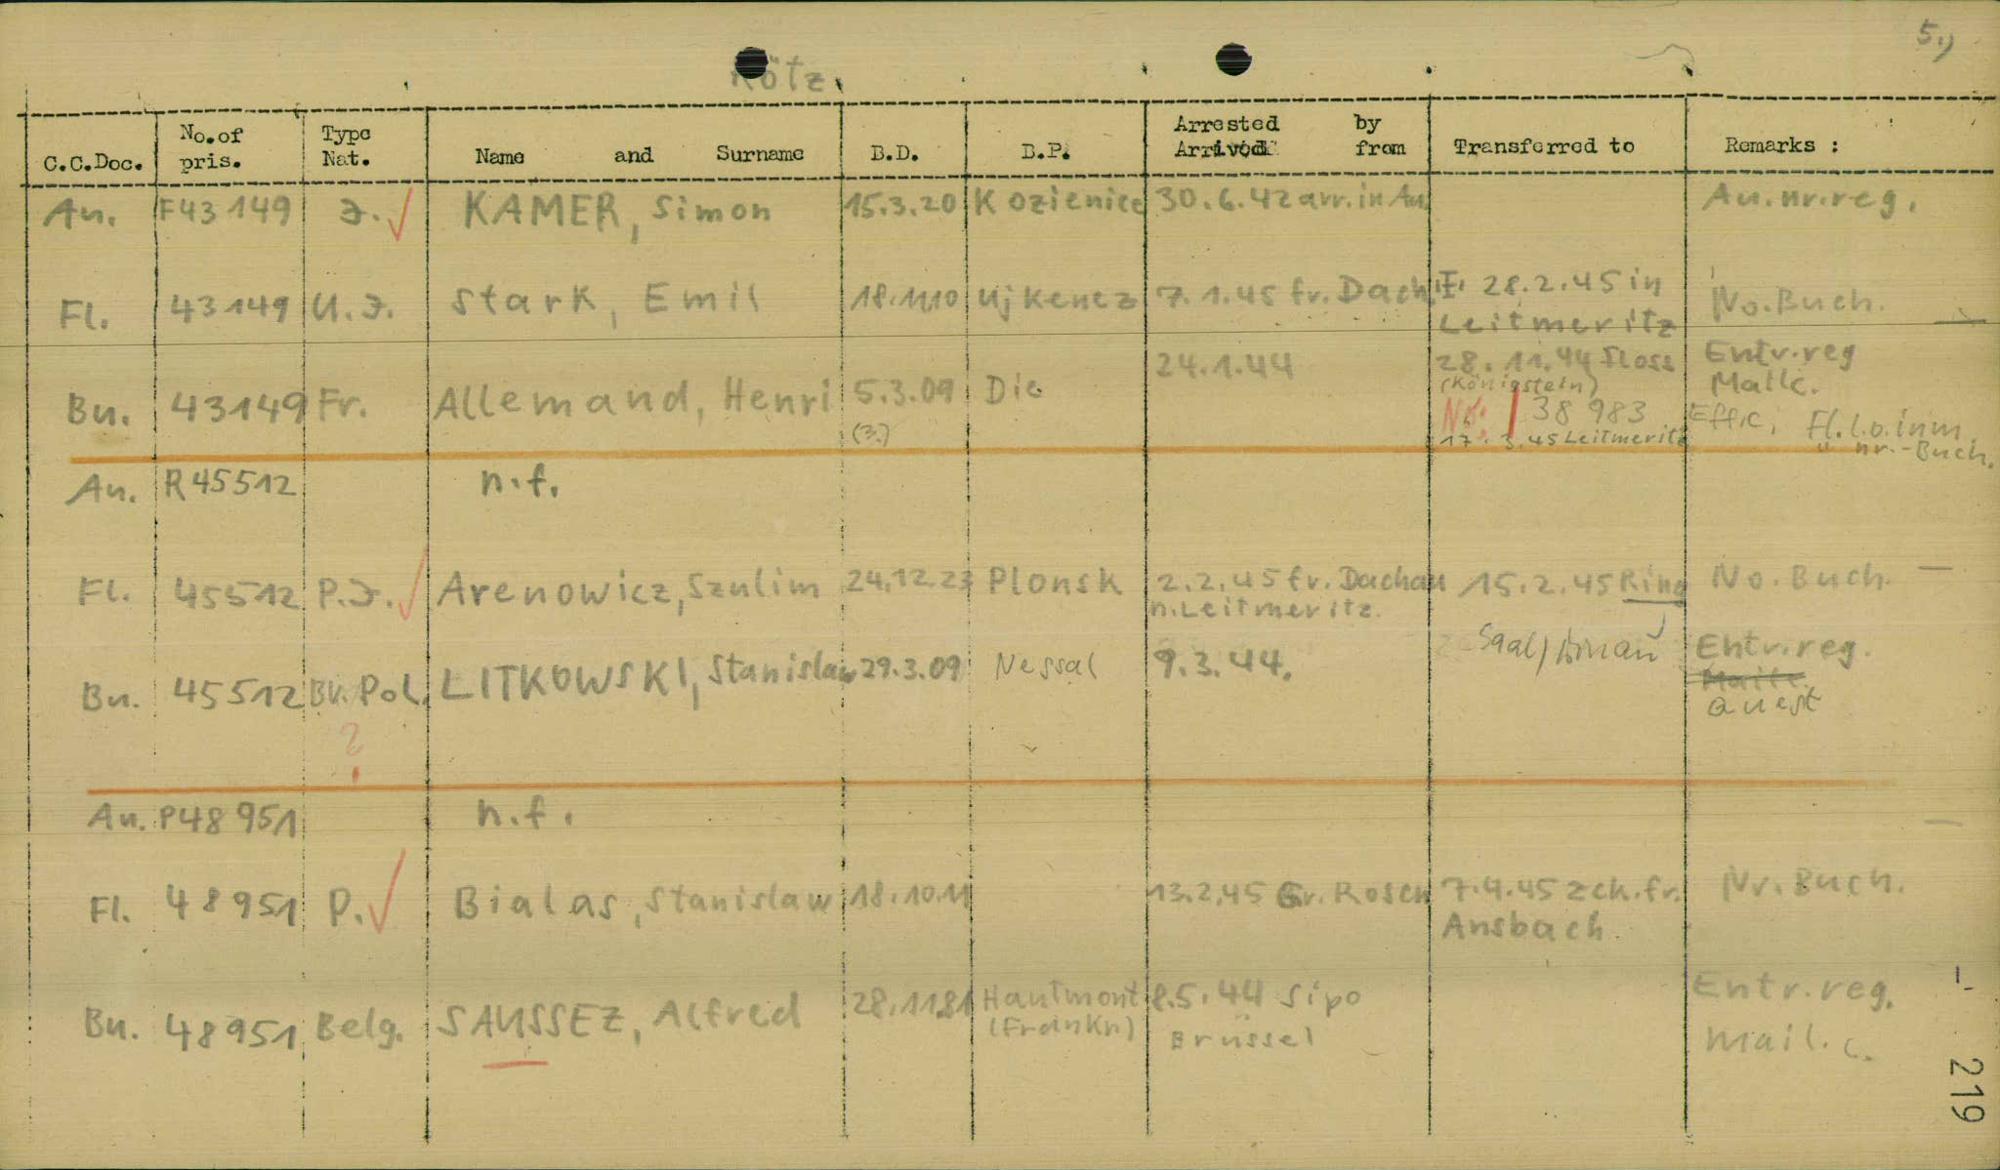 5.)
Kötz.
C.C.Doc. No.of pris. Type Nat. Name and Surname B.D. B.P. Arrested by Arrived from Transferred to Remarks :
An. F43149 J. KAMER, Simon 15.3.20 Kozienice 30.6.42 arr. in Au. Au.nr.reg.
Fl. 43149 U.J. Stark, Emil 18.11.10 Uj Kenez 7.1.45 fr. Dach. 28.2.45 in Leitmeritz No.Buch.
Bu. 43149 Fr. Allemand, Henri 5.3.09 (3.) Die 24.1.44 28.11.44 Floss (Königstein) No. 38983 17.3.45 Leitmeritz Entr.reg Mailc. Eff.c, Fl.l.o.inm. u nr.-Buch.
An. R45512 n.f.
Fl. 45512 P.J. Arenowicz, Szulim 24.12.23 Plonsk 2.2.45 fr. Dachau n.Leitmeritz. 15.2.45 Ring No.Buch. —
Saal/Donau
Bu. 45512 BV.Pol. LITKOWSKI, Stanislaw 29.3.09 Nessal 9.3.44. Entr.reg. Mailc. Quest
?
An. P48951 n.f.
Fl. 48951 P. Bialas, Stanislaw 18.10.11 13.2.45 Gr. Rosen 7.4.45 zck.fr. Ansbach. Nr.Buch.
Bu. 48951 Belg. SAUSSEZ, Alfred 28.11.81 Hautmont (Frankr) 8.5.44 Sipo Brüssel Entr.reg. Mail.c.
219